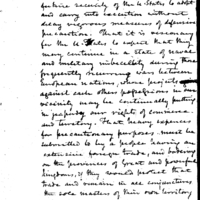 future security of the U. States to adopt
and carry into execution without
delay vigorous measures of defensive
precaution. That it is necessary
for the U. States to expect that they
may continue in a state of naval
and military imbecility during those
frequently recurring wars between
European nations, whose projects
against each other professedly on our
vicinity may be continually putting
in jeopardy our rights of commerce
and territory. That heavy expences
for precautionary purposes must be
submitted to by a people having an
extensive foreign trade, and bordering
on the provinces of Great and powerful
kingdoms, if they would protect that
trade and remain in all conjunctures
the sole masters of their own territory